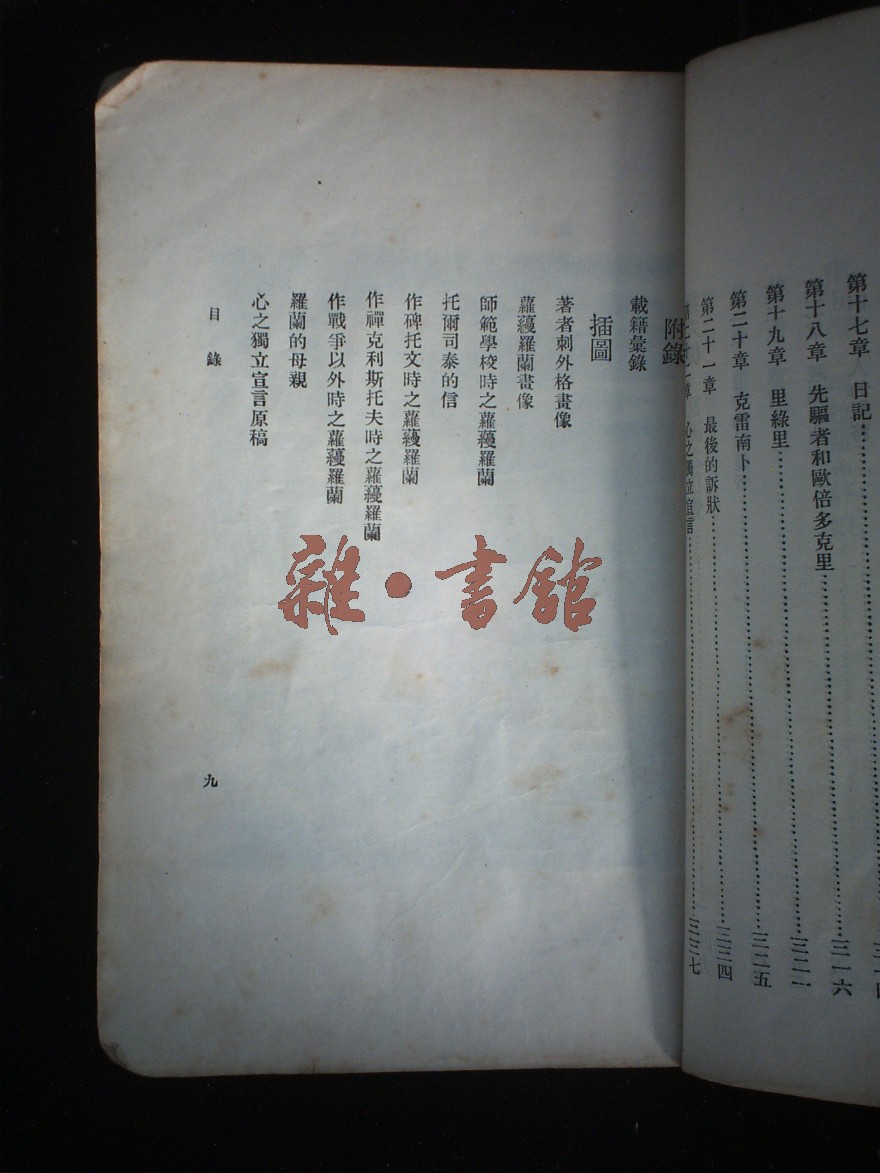 第十七章 日記
第十八章 先驅者和歐倍多克里……三一六
第十九章 里綠里……三二一
第二十章 克雷南卜……三二五
第二十一章 最後的訴狀……三三四
心之獨立宣言……三三七
附錄
載籍彙錄
插圖
著者刺外格畫像
蘿蔓羅蘭畫像
師範學校時之蘿蔓羅蘭
托爾司泰的信
作碑托文時之蘿蔓羅蘭
作禪克利斯托夫時之蘿蔓羅蘭
作戰爭以外時之蘿蔓羅蘭
羅蘭的母親
心之獨立宣言原稿
目錄
九
雜·書館